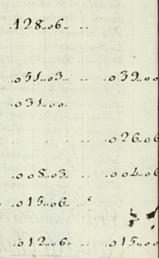 .128..06..
.051..03.. .. .039..00
.031..00.
.. .026..06
.008..03.. .. .004..06
.015..06..
.012..06.. .. .015..00